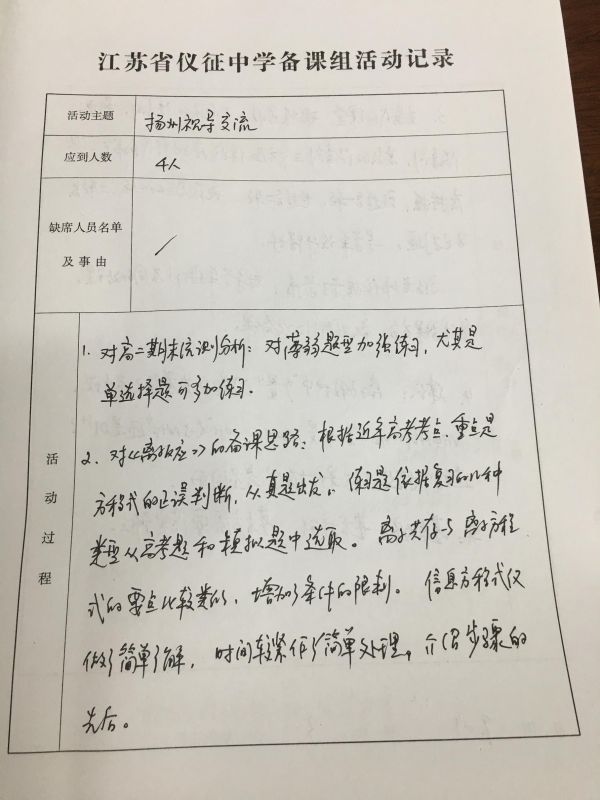 江苏省仪征中学备课组活动记录
活动主题 扬州视导交流
应到人数 4人
缺席人员名单
及事由 /
活动过程
1. 对高二期末统测分析：对薄弱题型加强练习，尤其是
单选择题可多加练习.
2. 对《离子反应》的备课思路：根据近年高考考点，重点是
方程式的正误判断，从真题出发。练习题依据复习的几种
类型从高考题和模拟题中选取。离子共存与离子方程
式的要点比较类似，增加了条件的限制。信息方程式仅
做了简单了解，时间较紧作了简单处理，介绍步骤的
先后。